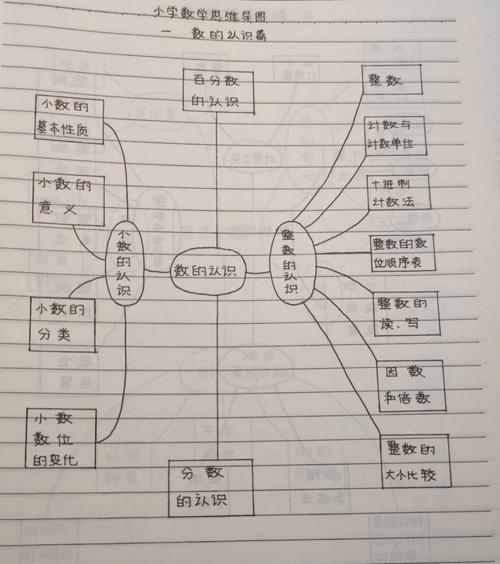 小学数学思维导图
一 数的认识篇
百分数
的认识
小数的
基本性质
小数的
意义
小数的
分类
小数
数位
的变化
小数的认识
数的认识
整数的认识
分数
的认识
整数
计数与
计数单位
十进制
计数法
整数的数
位顺序表
整数的
读、写
因数
和倍数
整数的
大小比较